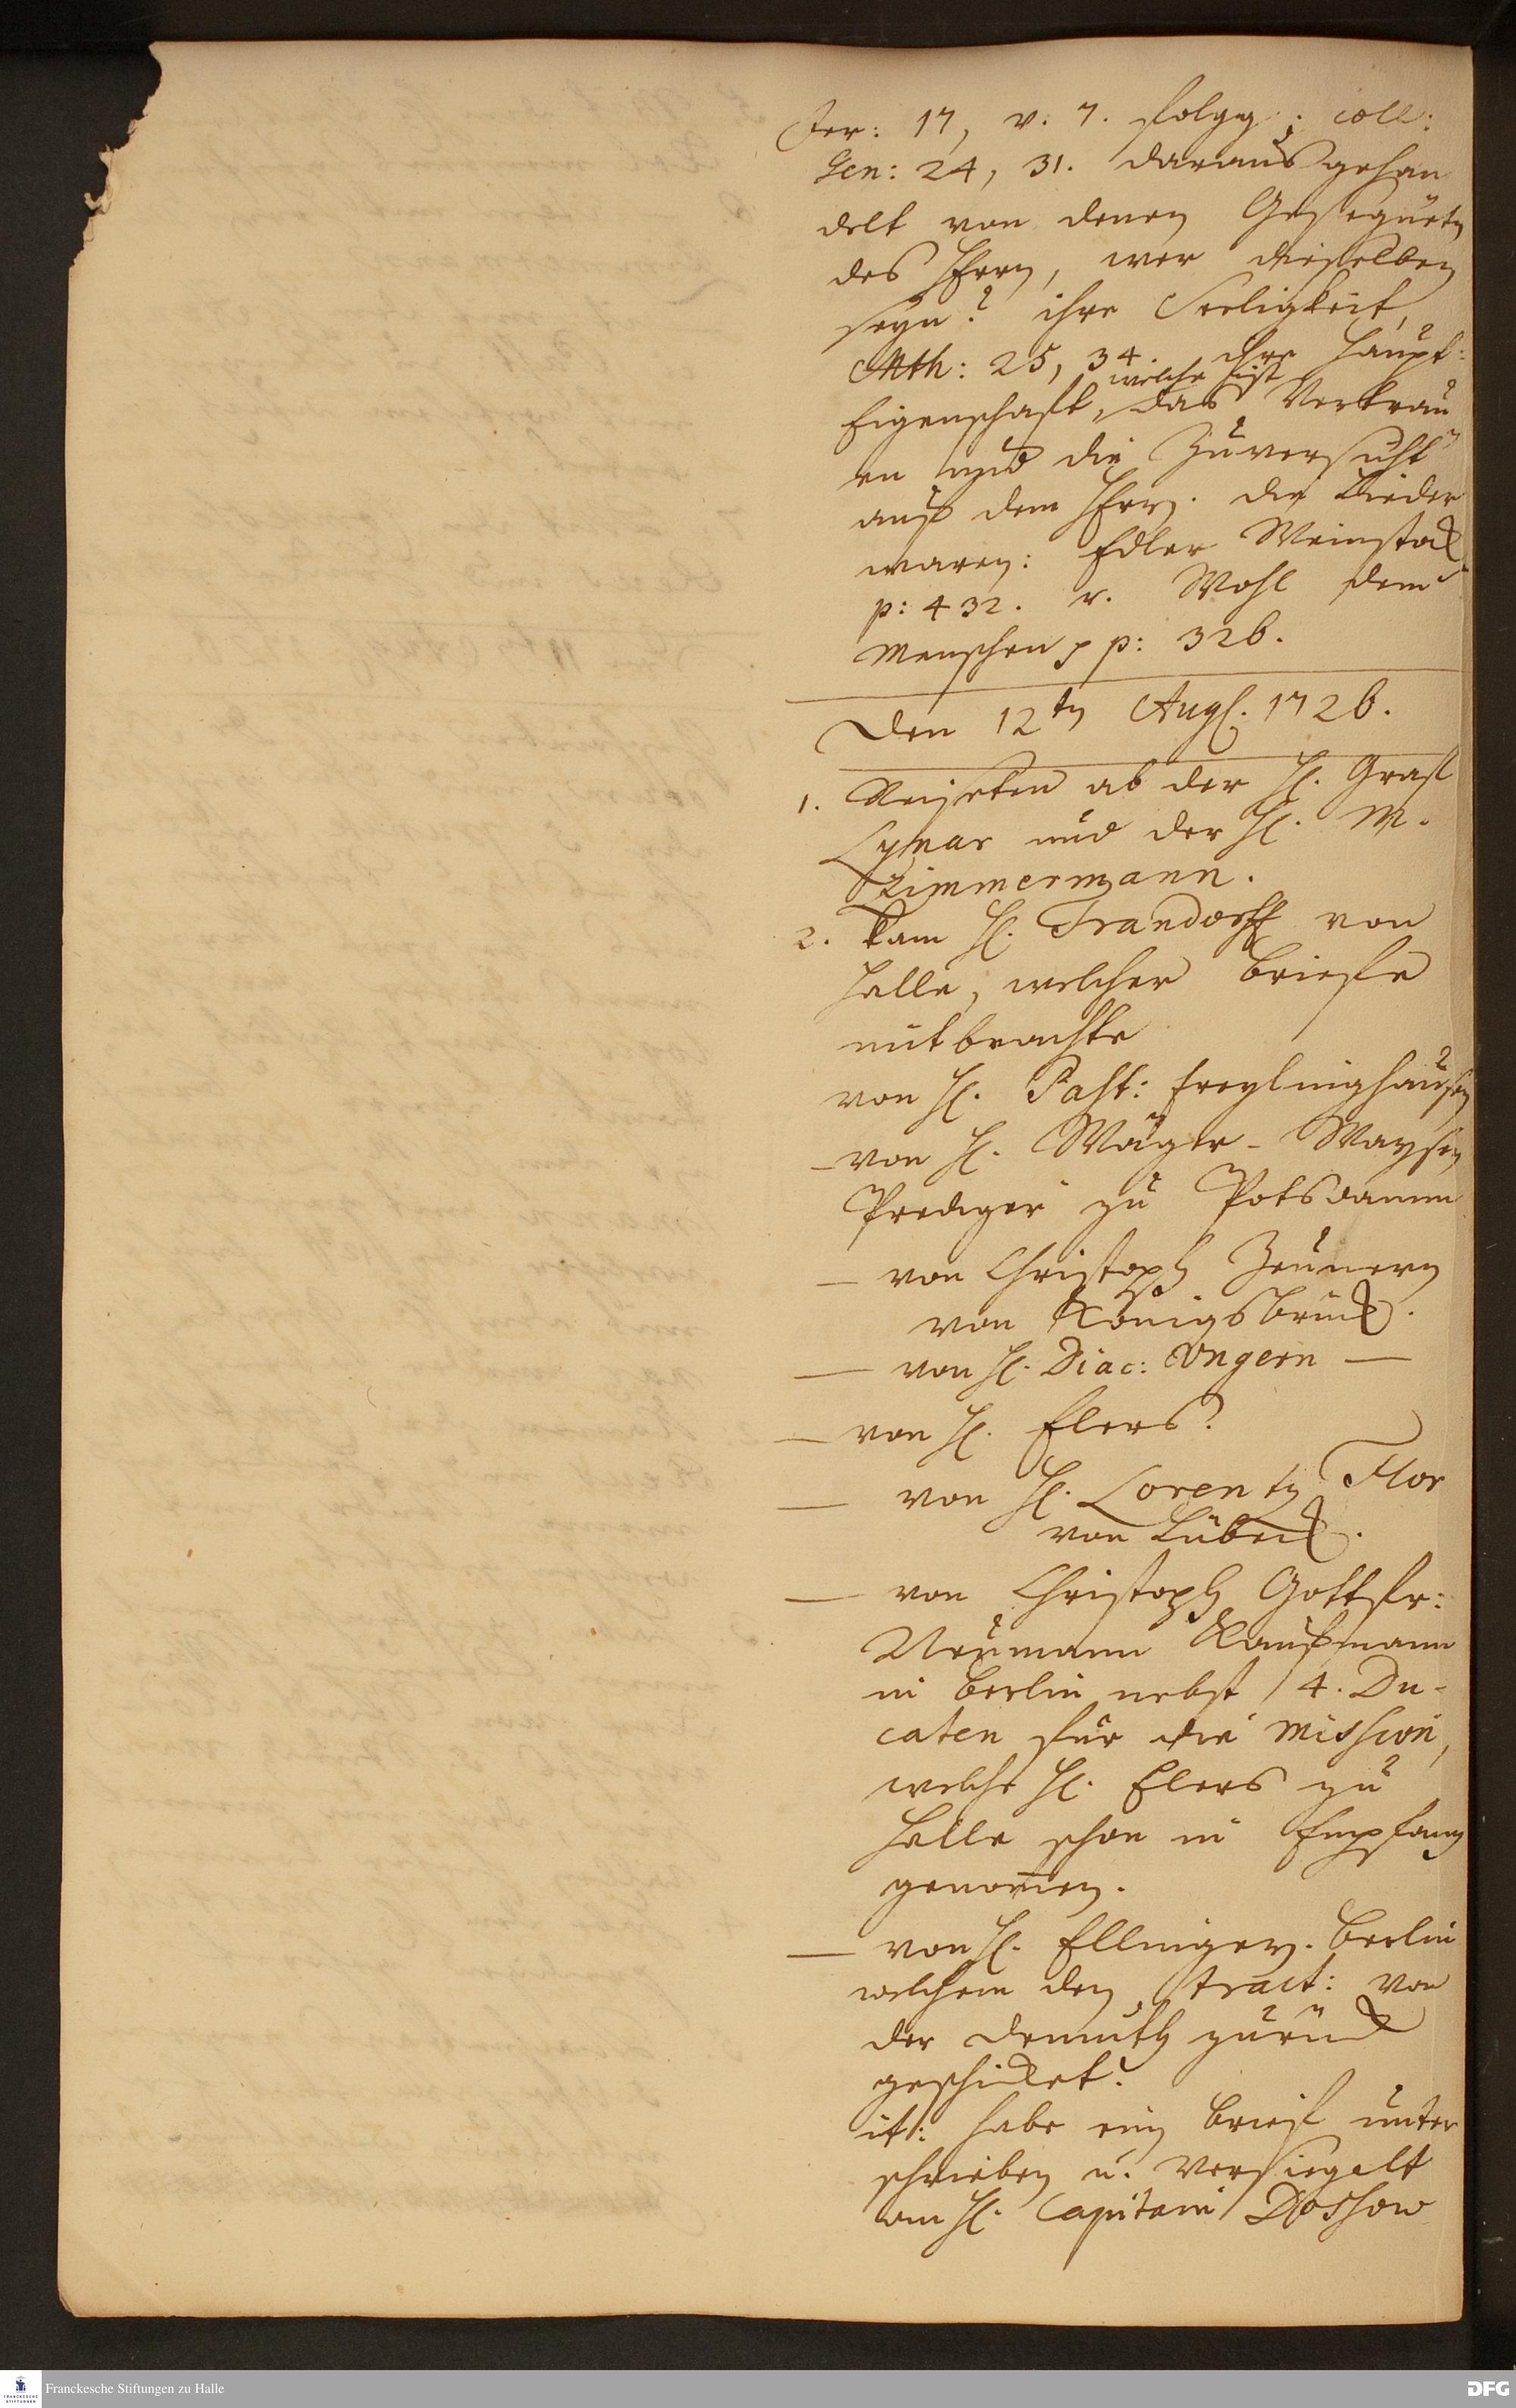 Jer: 17, v. 7. folgg; coll:
Gen: 24, 31. daraus gehan
delt von denen Gesegneten
des Herrn, wer dieselben
seyn? ihre Seeligkeit,
Mth: 25, 34. ihre Haupt=
welche ist
Eigenschafft, das Vertrau
en und die Zuversicht
auf dem Herrn. die Lieder
waren: Edler Weinstock
p: 432. v. Wohl dem
Menschen p p: 326.
Den 12ten Aug. 1726.
1. Reiseten ab der H. Graf
Lynar und der H. M.
Zimmermann.
2. Kam H. Trandorff von
Halle, welcher Briefe
mitbrachte
von H. Past: Freylinghausen
– von H. Wäger - Waysen
Prediger zu Potsdamm
– von Christoph Zeunern
von Königsbrück.
– von H. Diac: Ungern –
– von H. Elers.
– von H. Lorentz Flor
von Lübeck.
– von Christoph Gottfr:
Neumann Kauffmann
in Berlin nebst 4. Du-
caten für die Mission,
welche H. Elers zu
Halle schon in Empfang
genomen.
– von H. Ellinger. Berlin
welchem den tract: von
der Demuth zurück
geschicket.
it: habe ein Brief unter
schrieben u. versiegelt
an H. Capitain Dossow
Franckesche Stiftungen zu Halle
DFG